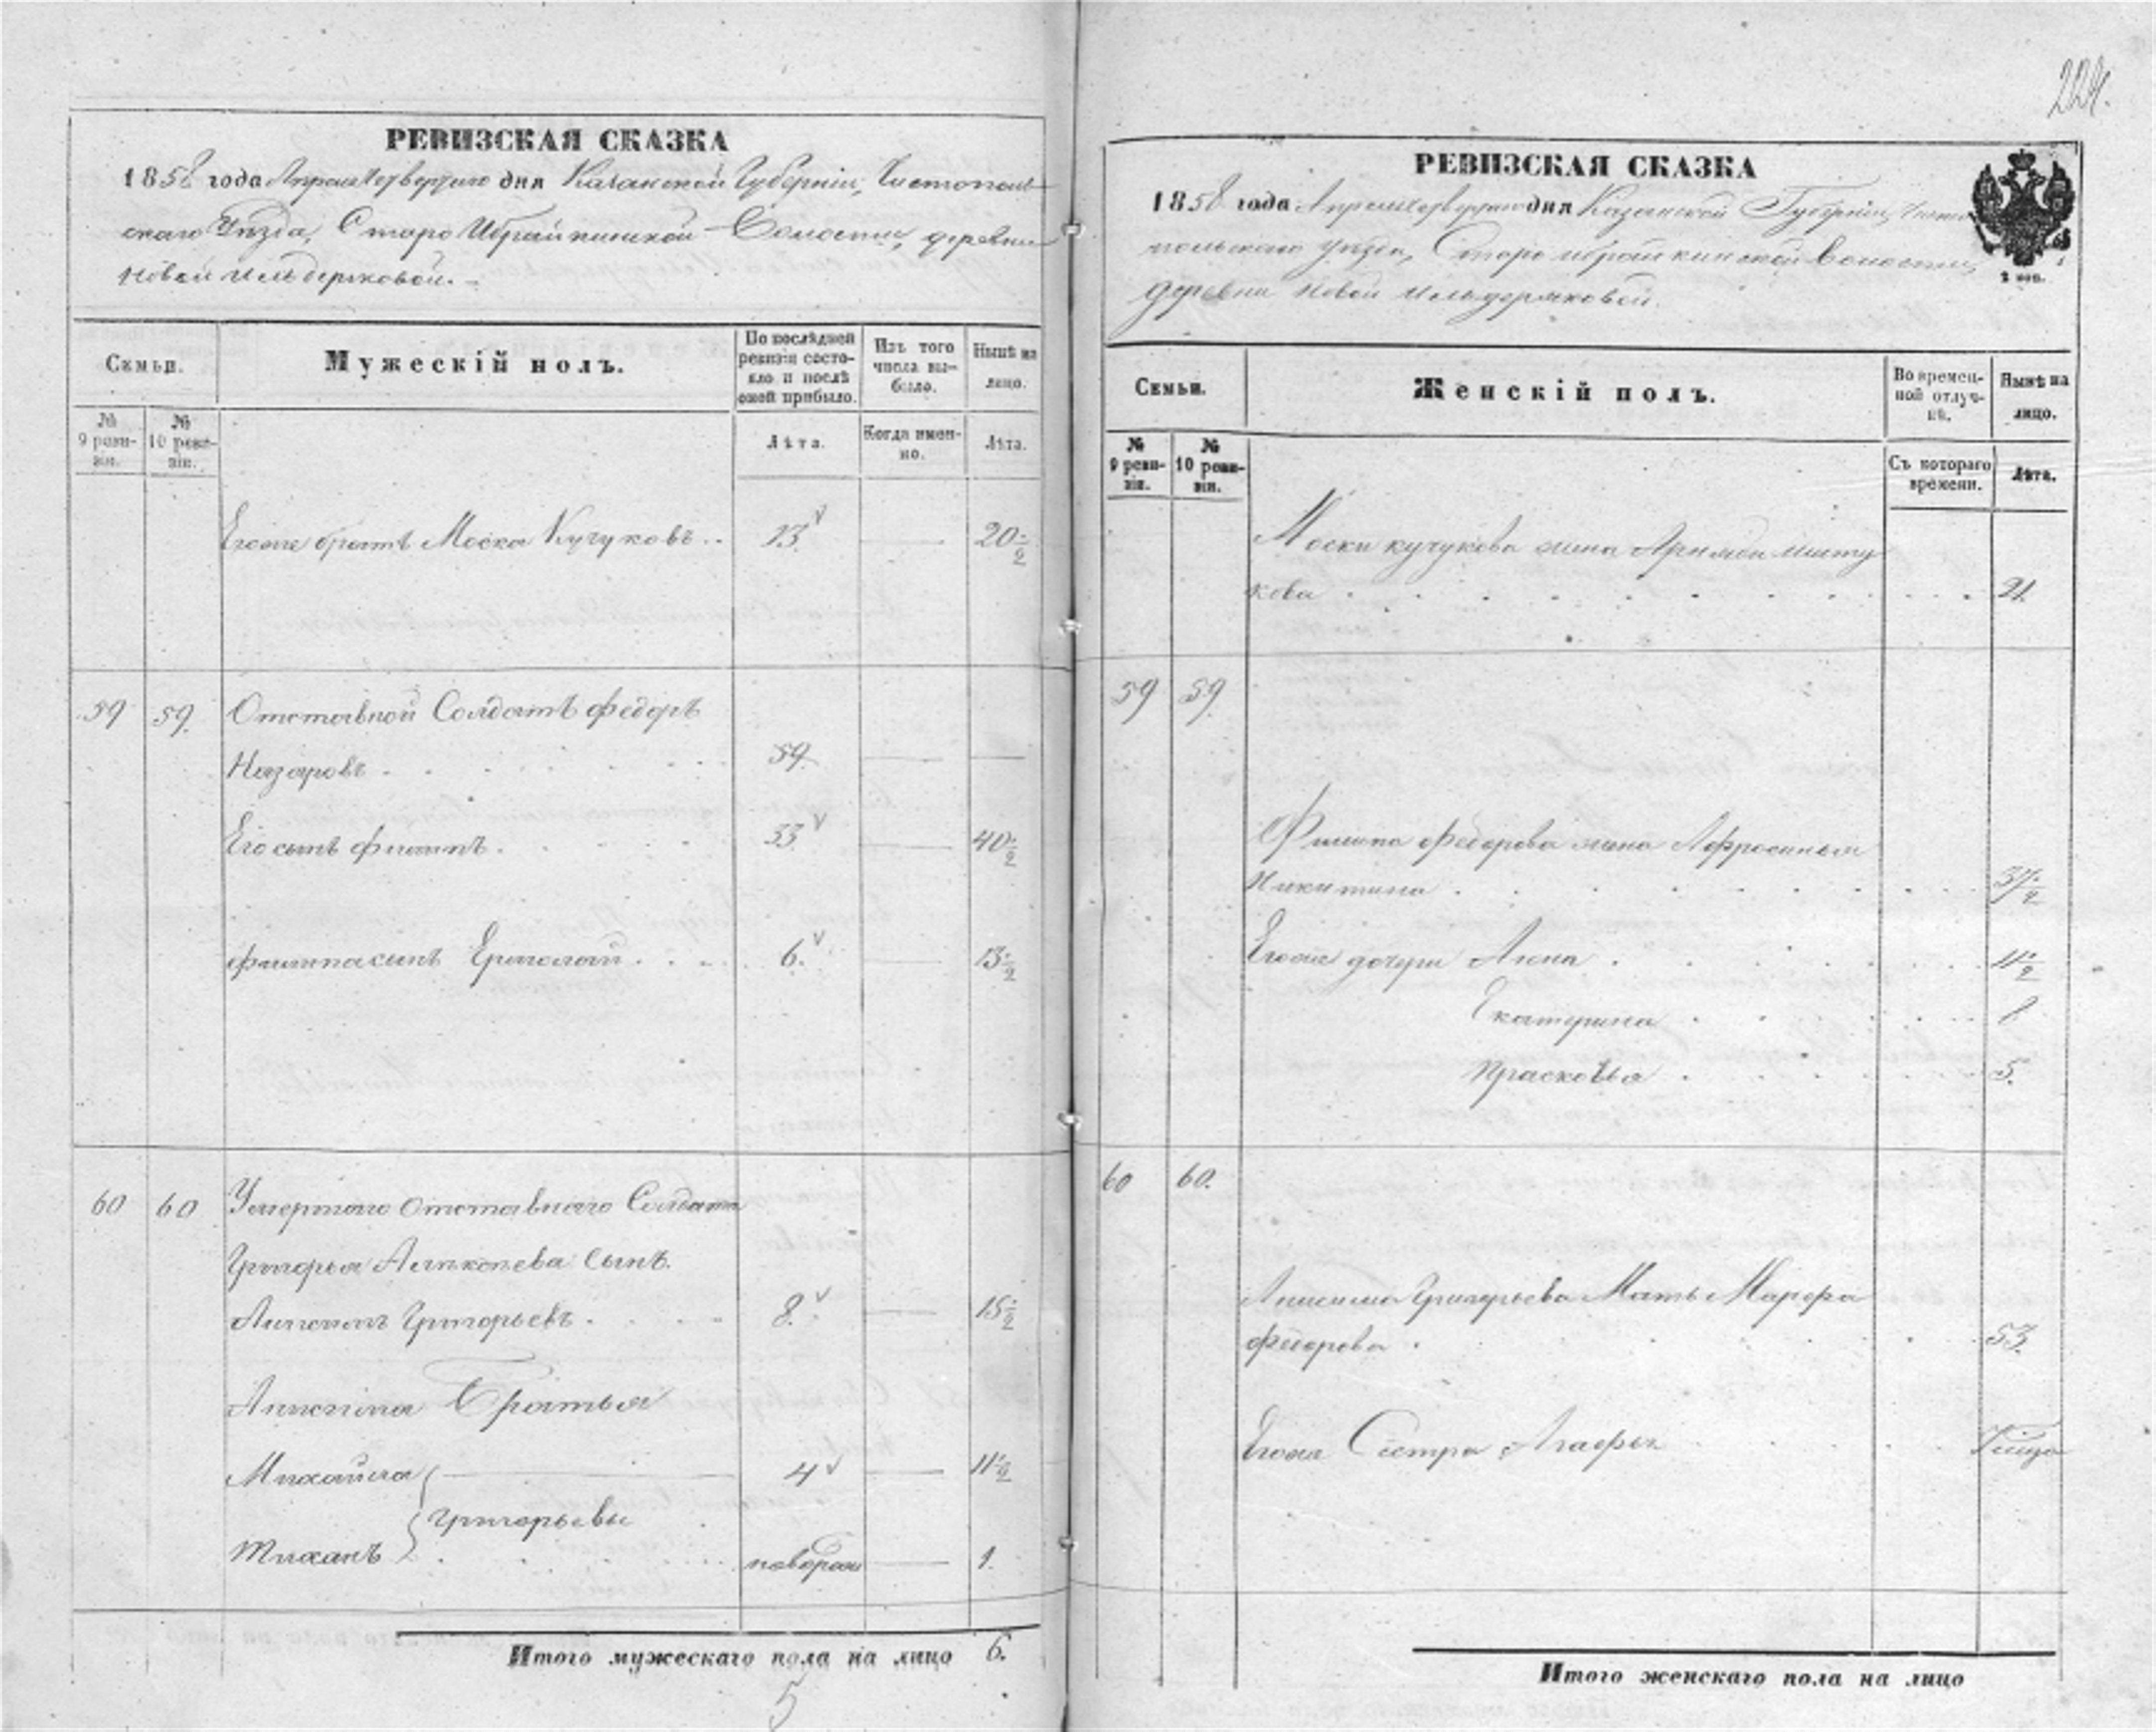 224.
РЕВИЗСКАЯ СКАЗКА
1858 года Апреля четвертаго дня Казанской Губерніи, Чистополь-
скаго Уѣзда, Старо Ибрайкинской Волости, деревни
Новой Ильдеряковой.
Семьи.
Мужескій полъ.
По послѣдней ревизіи состояло и послѣ оной прибыло.
Изъ того числа выбыло.
Нынѣ на лицо.
№ 9 ревизіи.
№ 10 ревизіи.
Лѣта.
Когда именно.
Лѣта.
Егоже братъ Моска Кучуковъ.. 13 20 1/2
59 59. Отставной Солдатъ Федоръ
Назаровъ 59
Его сынъ Филипъ. 33 40 1/2
Филиппа сынъ Ермолай. 6. 13 1/2
60 60 Умершаго Отставнаго Солдата
Григорья сынъ.
Григорьевъ. 8. 15 1/2
Братья
Михайла 4 11 1/2
Григорьевы
Тиханъ 1.
Итого мужескаго пола на лицо 6.
5
РЕВИЗСКАЯ СКАЗКА
1858 года Апреля четвертаго дня Казанской Губерніи, Чисто
польскаго Уѣзда, Старо Ибрайкинской Волости,
деревни Новой Ильдеряковой.
2 коп.
Семьи.
Женскій полъ.
Во временной отлучкѣ.
Нынѣ на лицо.
№ 9 ревизіи.
№ 10 ревизіи.
Съ котораго времени.
Лѣта.
Моски Кучукова жена
кова 21.
59 59.
Филипа Федорова жена Афросинья
Никитина 37 1/2
Егоже дочери Анна 11 1/2
Екатерина 8
Прасковья 5.
60 60.
Григорьева Мать Марфа
Федорова 53.
Сестра Агафья
Итого женскаго пола на лицо